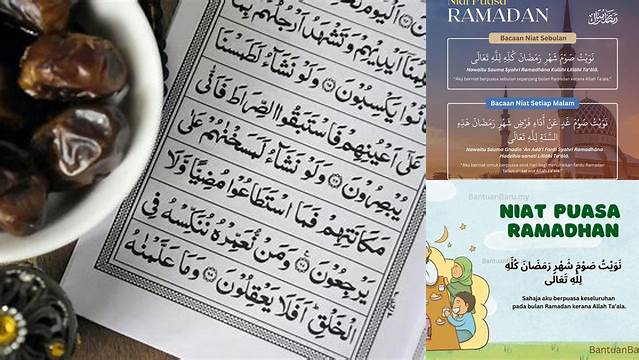 اَلْيَوْمَ
اَيْدِيْهِمْ وَتَشْهَدُ اَرْجُلُهُمْ بِمَا
يَكْسِبُوْنَ ۝ وَلَوْ نَشَآءُ لَطَمَسْنَا
عَلٰٓى اَعْيُنِهِمْ فَاسْتَبَقُوا الصِّرَاطَ فَاَنّٰى
يُبْصِرُوْنَ ۝ وَلَوْ نَشَآءُ لَمَسَخْنٰهُمْ عَلٰى
مَكَانَتِهِمْ فَمَا اسْتَطَاعُوْا مُضِيًّا وَّلَا
يَرْجِعُوْنَ ۝ وَمَنْ نُّعَمِّرْهُ نُنَكِّسْهُ فِى
الْخَلْقِ ۗ اَفَلَا يَعْقِلُوْنَ ۝ وَمَا عَلَّمْنٰهُ
Niat Puasa
RAMADAN
Bacaan Niat Sebulan
نَوَيْتُ صَوْمَ شَهْرِ رَمَضَانَ كُلِّهِ لِلّٰهِ تَعَالَى
Nawaitu Sauma Syahri Ramadhāna Kullihi Lillāhi Ta'ālā.
"Aku berniat berpuasa sebulan sepanjang bulan Ramadan kerana Allah Ta'ala."
Bacaan Niat Setiap Malam
نَوَيْتُ صَوْمَ غَدٍ عَنْ أَدَاءِ فَرْضِ شَهْرِ رَمَضَانَ هٰذِهِ
السَّنَةِ لِلّٰهِ تَعَالَى
Nawaitu Sauma Ghadin 'An Adā'i Fardi Syahri Ramadhāna
Hadzihis-sanati Lillāhi Ta'ālā.
"Aku berniat untuk berpuasa esok hari bagi menunaikan fardu Ramadan
tahun ini kerana Allah Ta'ala."
BantuanBaru.my
NIAT PUASA
RAMADHAN
نَوَيْتُ صَوْمَ شَهْرِ رَمَضَانَ كُلِّهِ
لِلّٰهِ تَعَالَى
Sahaja aku berpuasa keseluruhan
pada bulan Ramadan kerana Allah Ta'ala.
BantuanBa